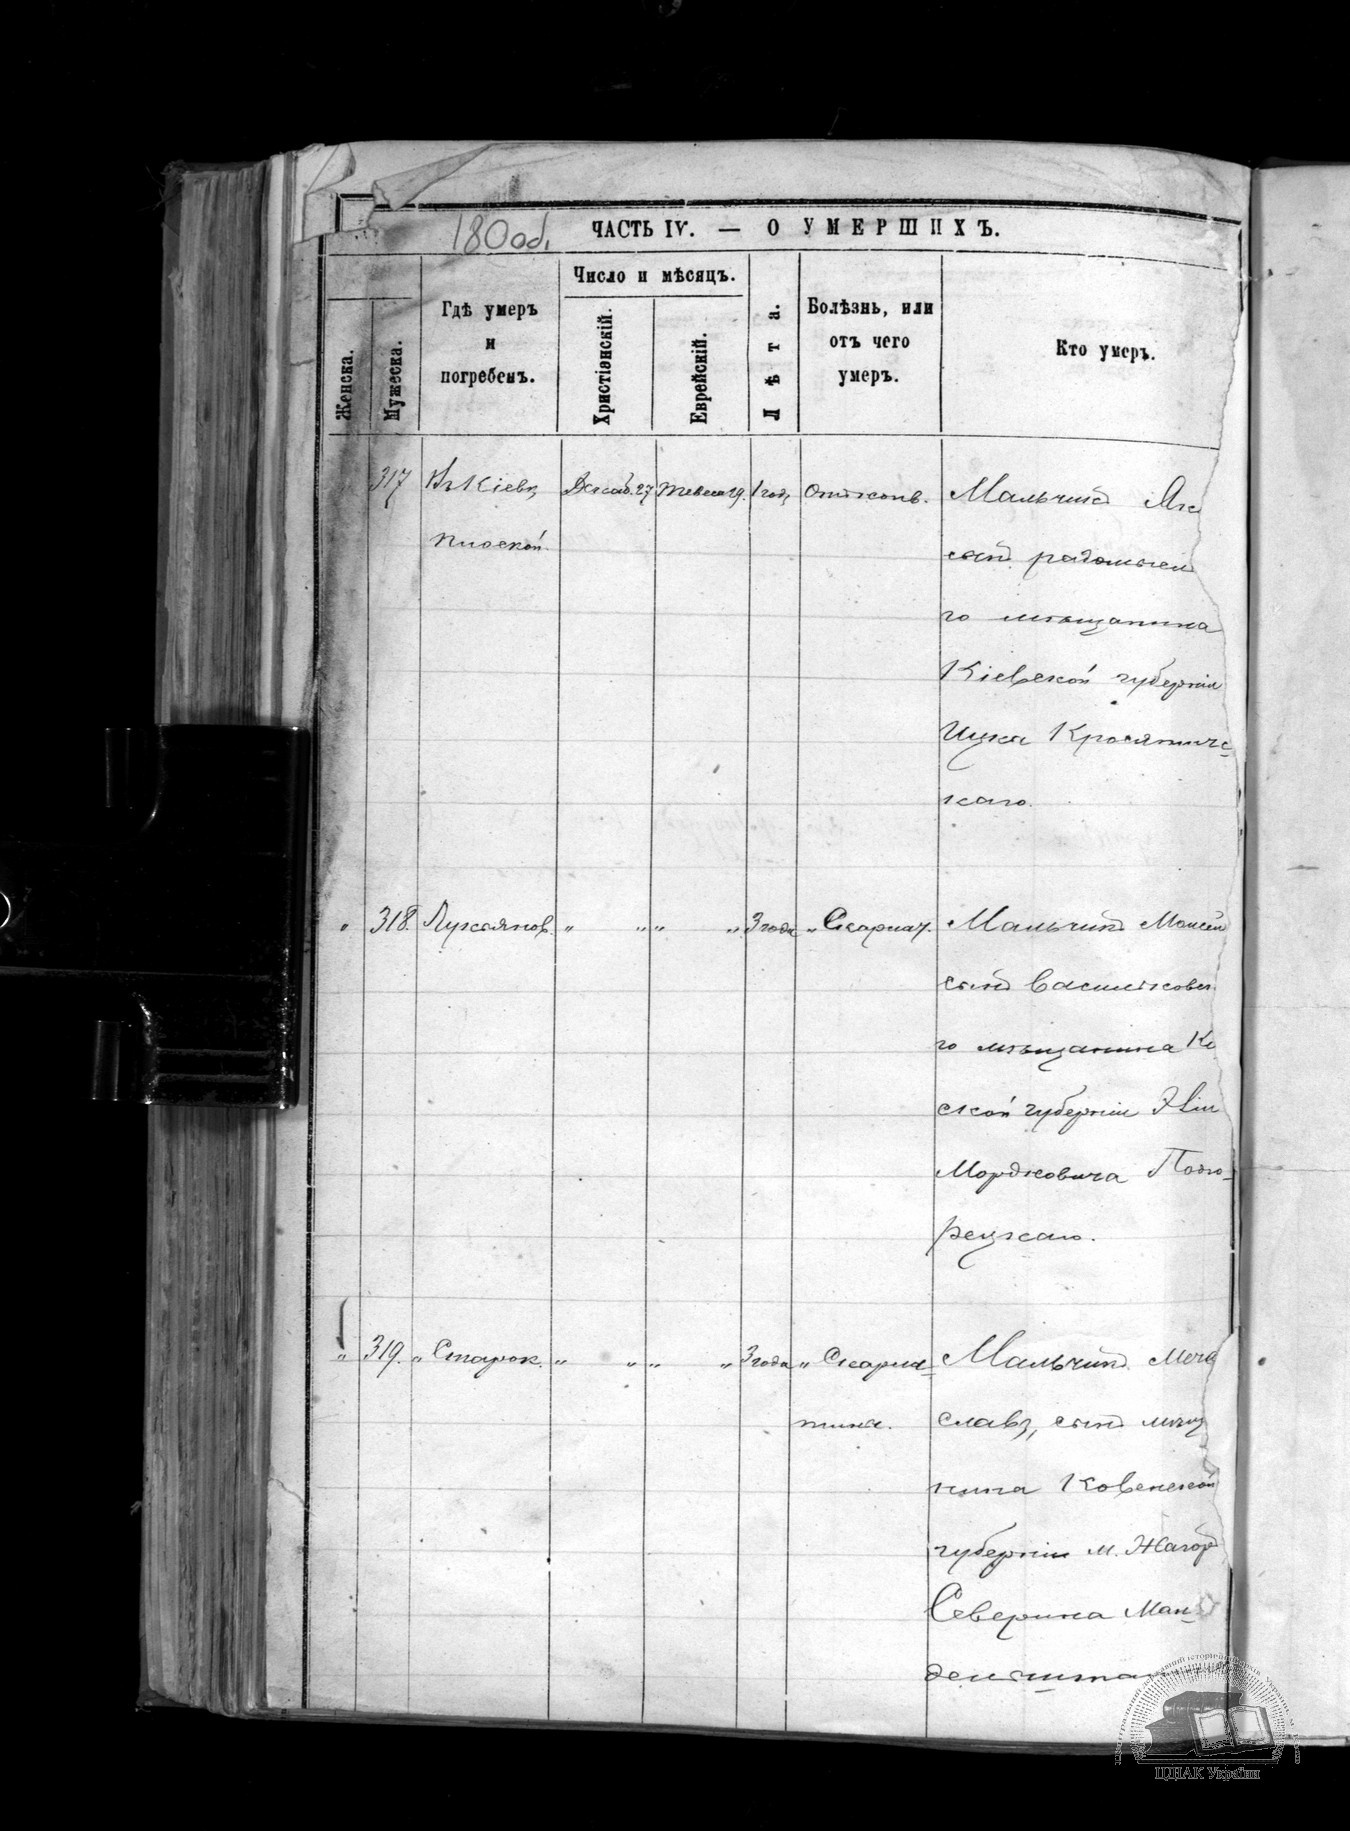 180 об.
ЧАСТЬ IV. — О УМЕРШИХЪ.
Женска.
Мужеска.
Гдѣ умеръ
и
погребенъ.
Число и мѣсяцъ.
Христіянскій.
Еврейскій.
Лѣта.
Болѣзнь, или
отъ чего
умеръ.
Кто умеръ.
317 Въ Кіевѣ Декаб. 27 Тевеса 19. 1 годъ Мальчикъ
Плоской. сынъ радомысл
го мѣщанина
Кіевской губерніи
Ицка Кросятичс-
каго.
" 318. Лукьянов. " " " " 3 года " Скарлат. Мальчикъ Моисей
сынъ васильковск
го мѣщанина К
ской губерніи
Мордковича Подго-
рецкаго.
" 319. " Старок. " " " " 3 года " Скарла- Мальчикъ Мече
тина. славъ, сынъ мѣщ
нина Ковенской
губерніи м. Жагор
Северина Ман-
дельшта
ЦДІАК України